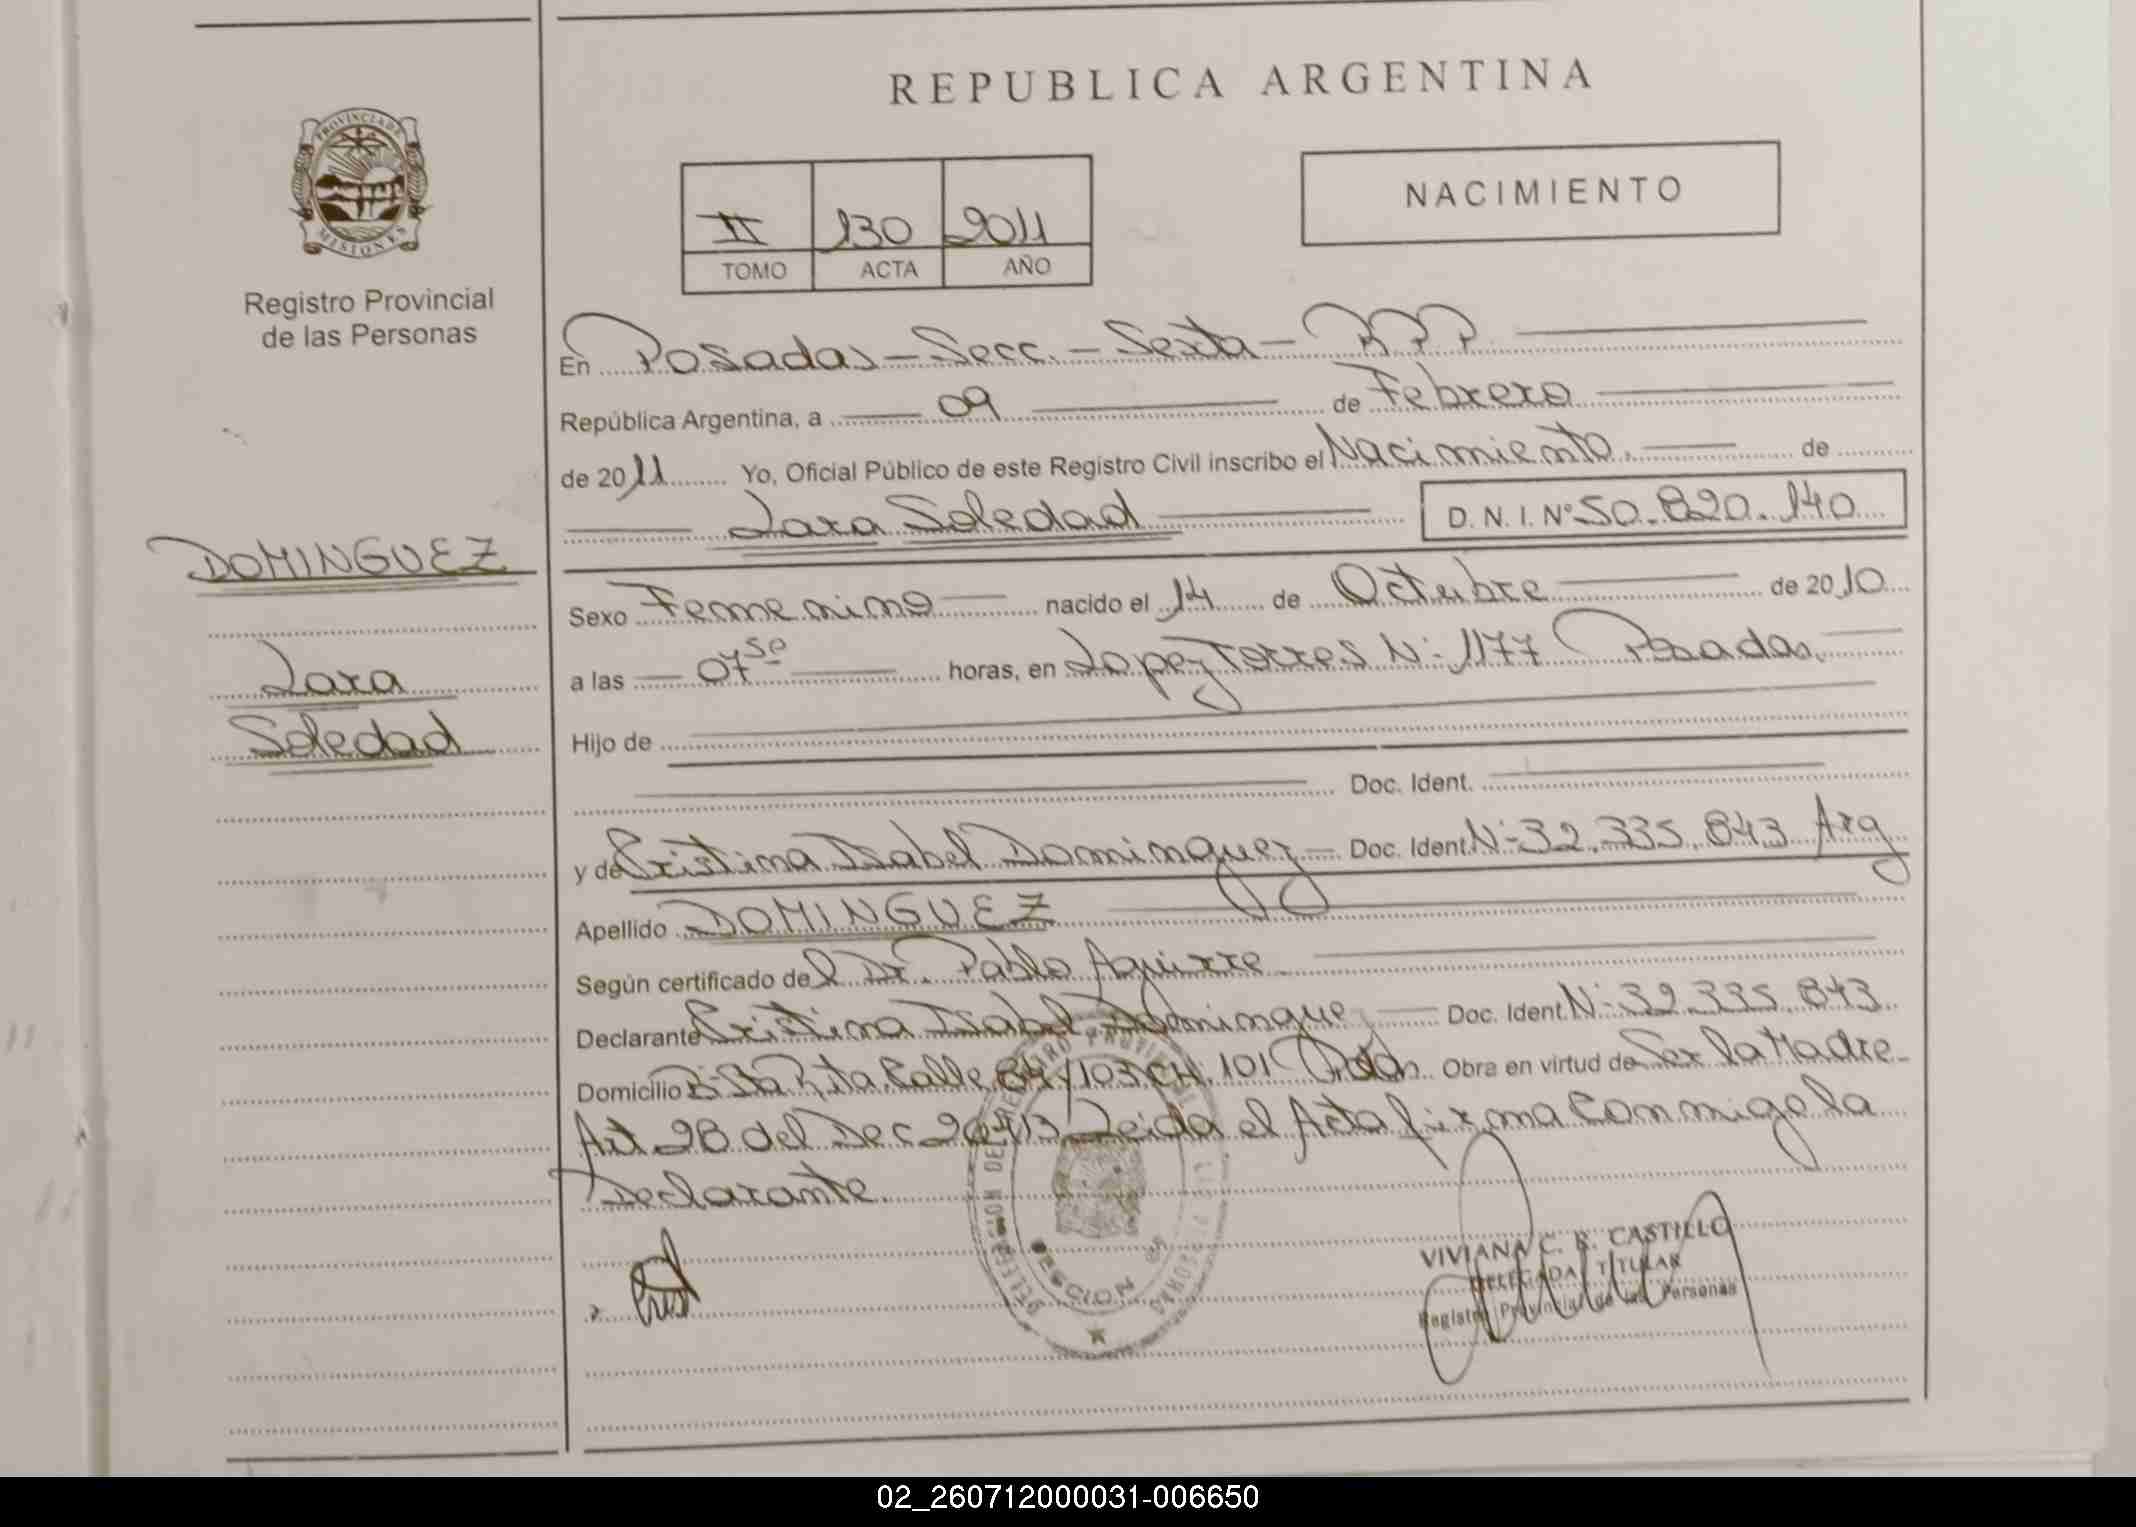 REPUBLICA ARGENTINA
PROVINCIA DE
MISIONES
Registro Provincial
de las Personas
II 130 2011
TOMO ACTA AÑO
NACIMIENTO
DOMINGUEZ
Lara
Soledad
En Posadas - Secc. - Sexta - RPP
República Argentina, a 09 de Febrero
de 2011 Yo, Oficial Público de este Registro Civil inscribo el Nacimiento. de
Lara Soledad D.N.I. Nº 50.820.140
Sexo Femenino nacido el 14 de Octubre de 2010
a las 07 50 horas, en Lopez Torres Nº 1177 Posadas.
Hijo de
Doc. Ident.
y de Cristina Isabel Dominguez Doc. Ident. Nº 32.335.843 Arg
Apellido DOMINGUEZ
Según certificado del Dr. Pablo Aguirre
Declarante Cristina Isabel Dominguez Doc. Ident Nº 32.335.843
Domicilio Bº Sta Rita Calle 84/103 CH. 101 Pdas. Obra en virtud de Ser la Madre
Art 28 del Dec 204/3 Leida el Acta firma Conmigo la
Declarante.
VIVIANA C. R. CASTILLO
DELEGADA TITULAR
Registro Provincial de las Personas
02_260712000031-006650